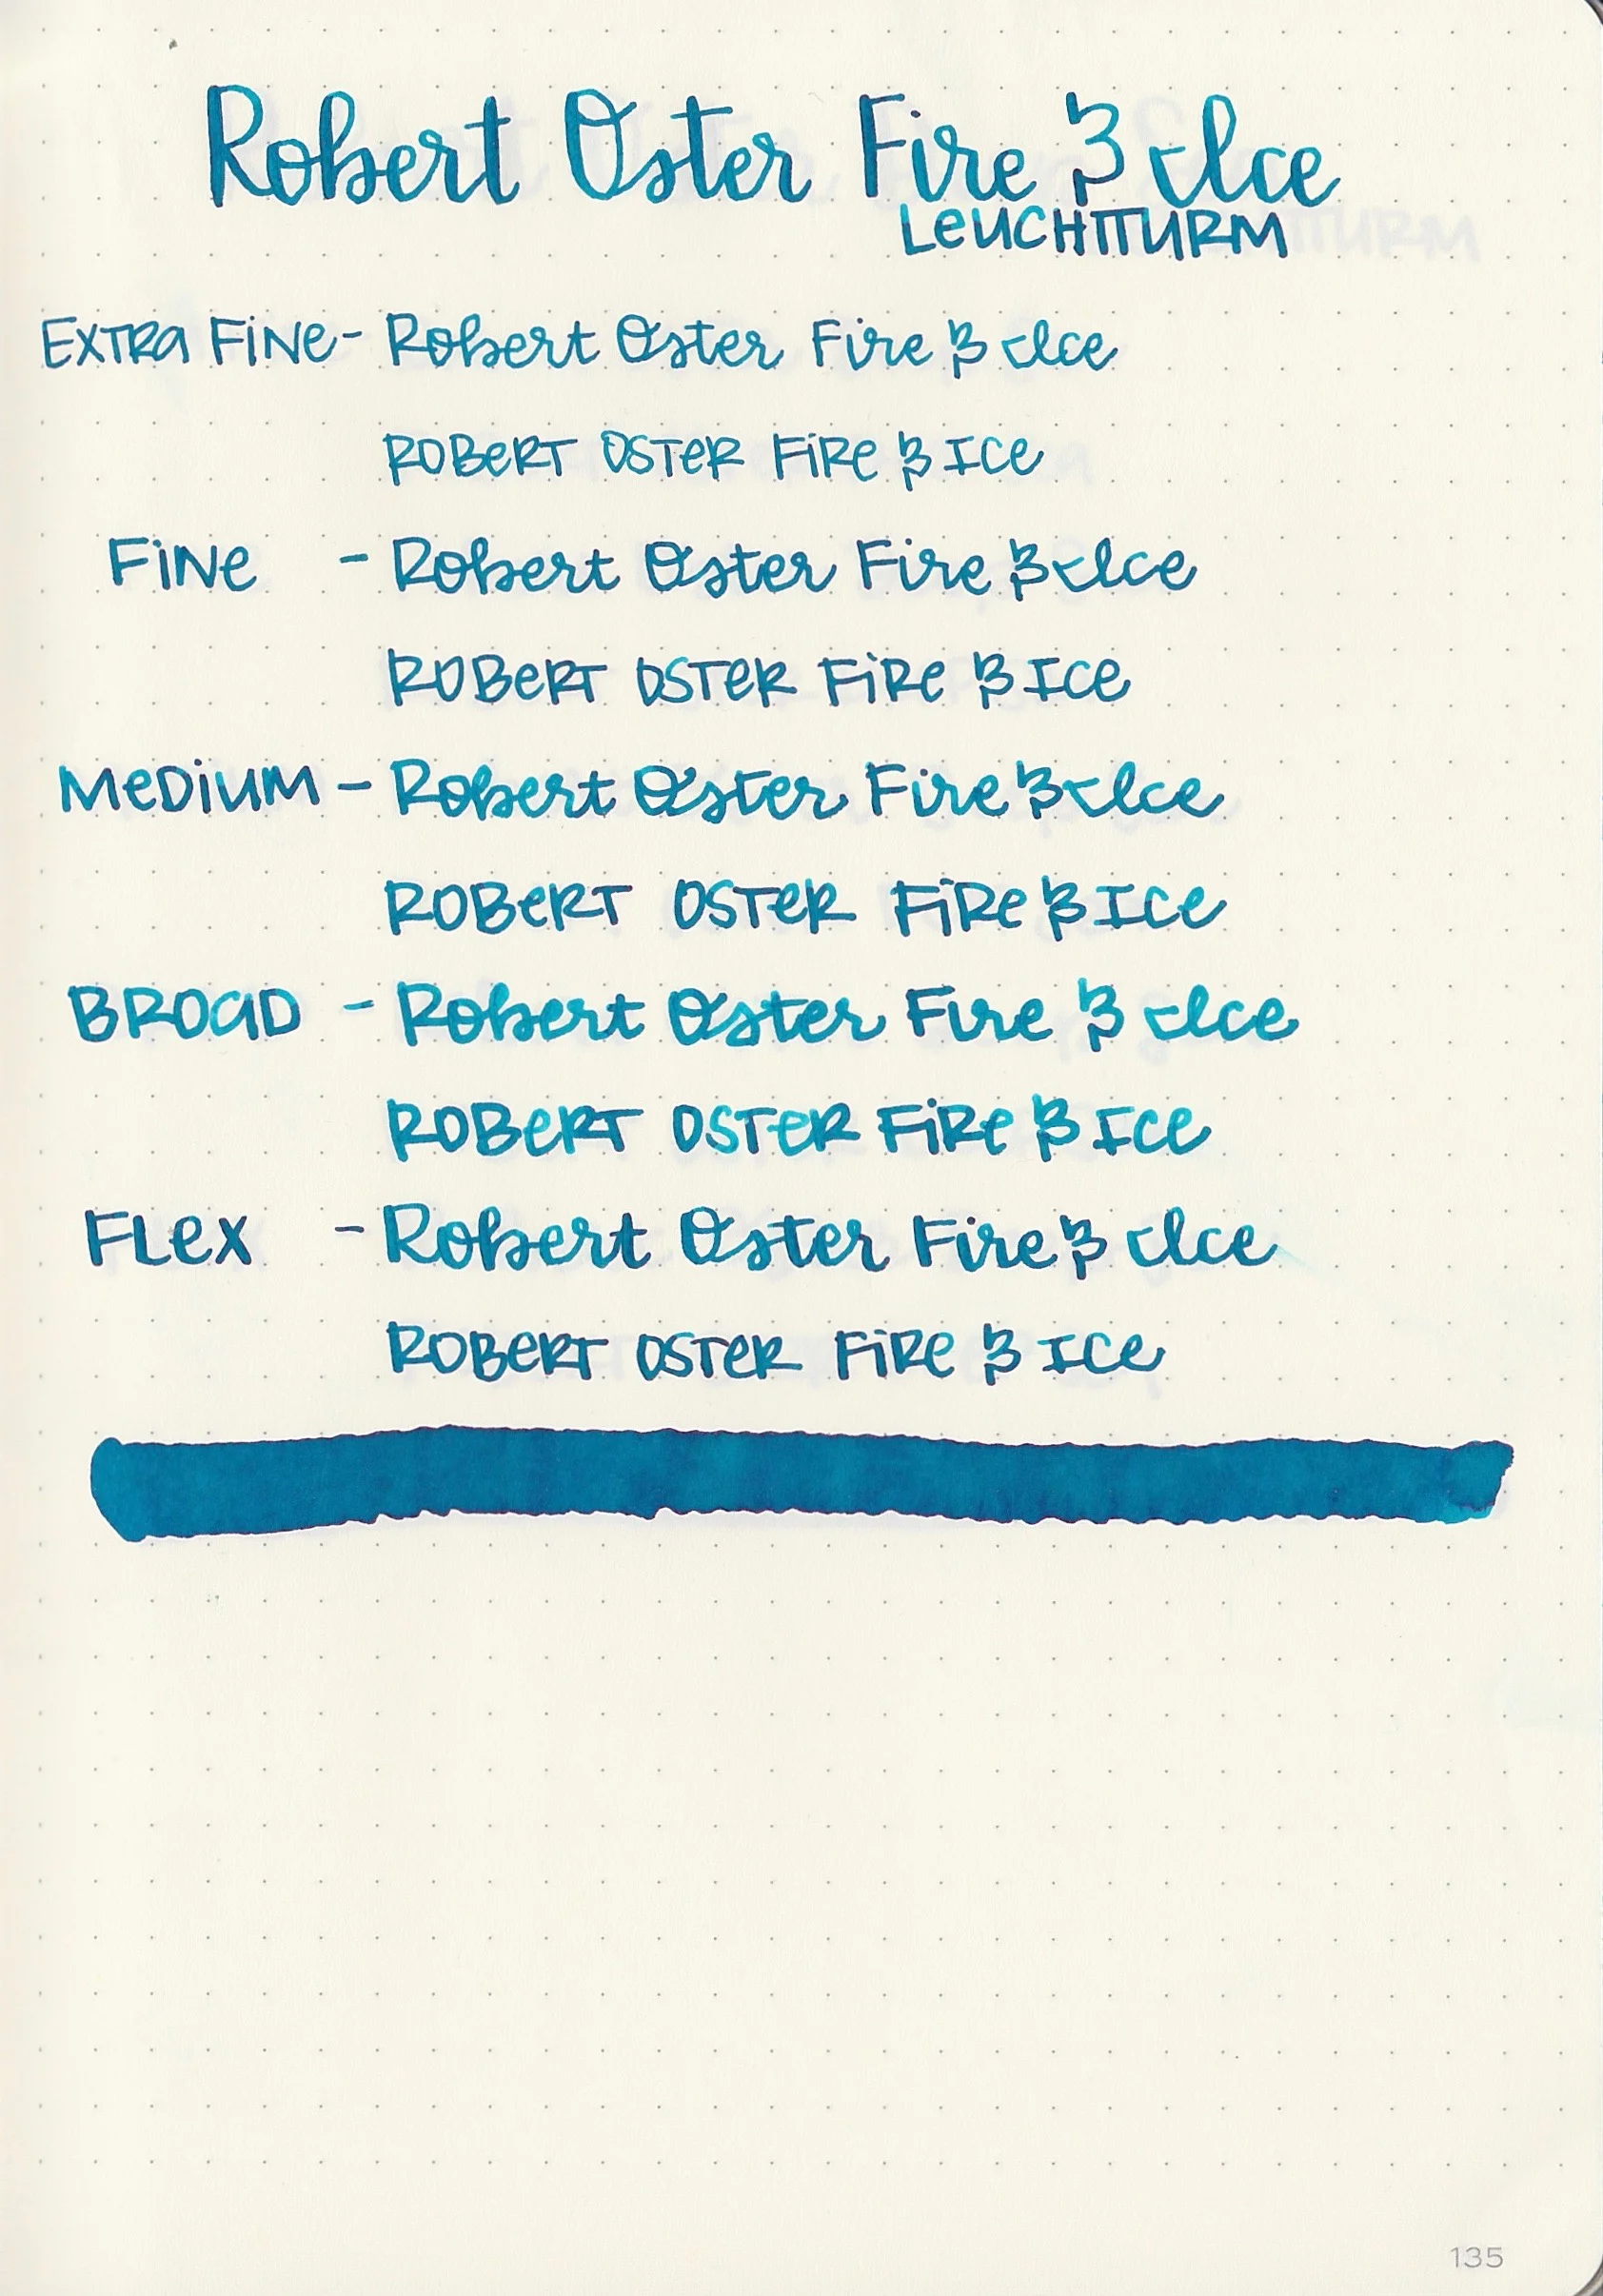 Robert Oster Fire & Ice
LEUCHTTURM
EXTRA FINE - Robert Oster Fire & Ice
ROBERT OSTER FIRE & ICE
FINE - Robert Oster Fire & Ice
ROBERT OSTER FIRE & ICE
MEDIUM - Robert Oster Fire & Ice
ROBERT OSTER FIRE & ICE
BROAD - Robert Oster Fire & Ice
ROBERT OSTER FIRE & ICE
FLEX - Robert Oster Fire & Ice
ROBERT OSTER FIRE & ICE
135